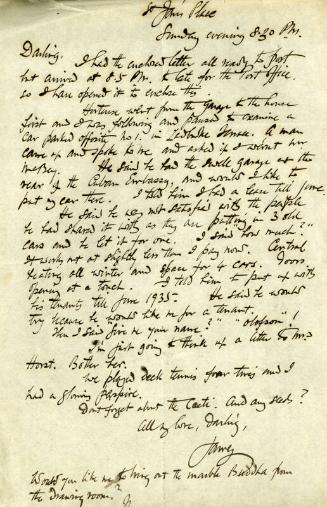 St John's Place
Sunday evening 8.30 P.M.
Darling. I had the enclosed letter all ready to post
but arrived at 8.5 P.M. to late for the Post Office
so I have opened it to enclose this
went from the Garage to the house
first and I was following and paused to examine a
car parked opposite No 1. in A man
came up and spoke to me and asked if I weren't
He said he had the small garage at the
rear of the Cuban Embassy, and would I like to
put my car there. I told him I had a lease till June
He said he was not satisfied with the people
he had shared it with as they were putting in 3 old
cars and he let it for one. I said how much?"
It works out at slightly less than I pay now. Central
heating all winter and space for 4 cars. Doors
opening at a touch. I told him to put up with
his tenants till June 1935. He said he would
try because he would like me for a tenant.
Then I said give me your name?"
I'm just going to think up a letter to Mrs
Horst. Bother her.
We played deck tennis four times and I
had a glorious perspire.
Don't forget about the Cacti. And any seeds?
All my love, Darling,
Would you like me to bring out the marble Buddha from
the drawing room?